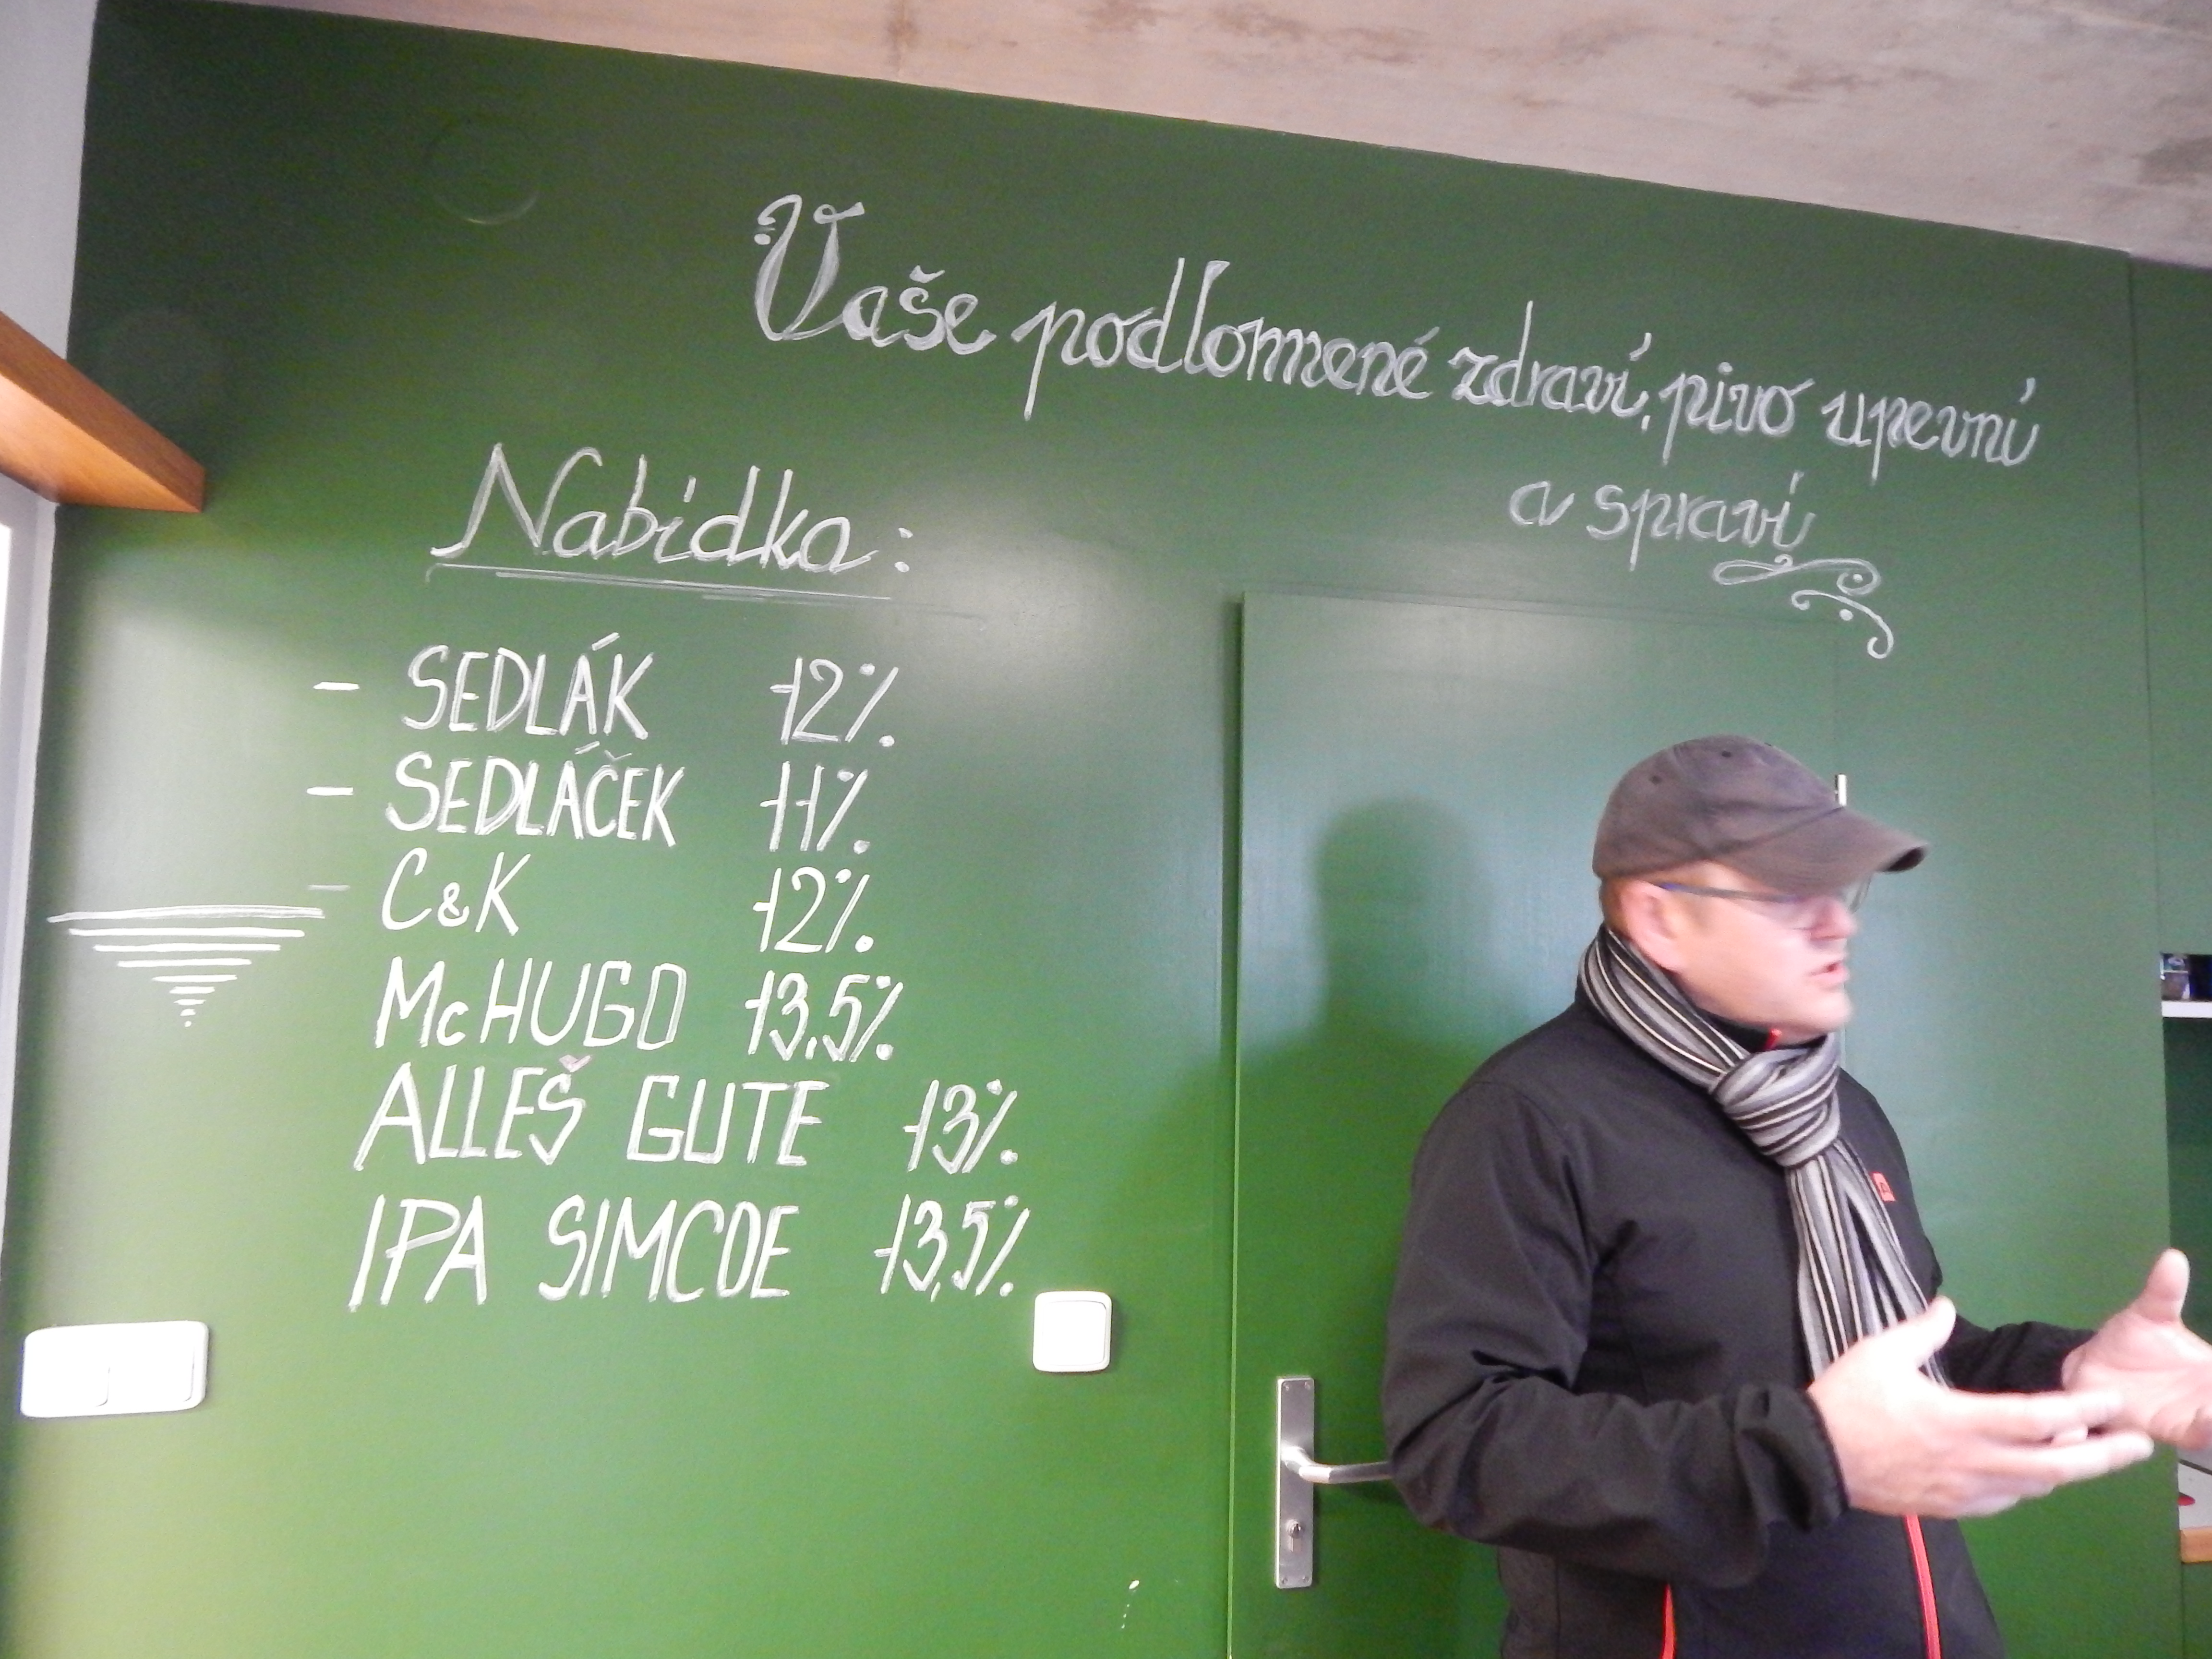 Vaše podlomené zdraví, pivo upevní
a spraví
Nabídka:
- SEDLÁK 12%
- SEDLÁČEK 11%
- C&K 12%
McHUGO 13,5%
ALLEŠ GUTE 13%
IPA SIMCOE 13,5%